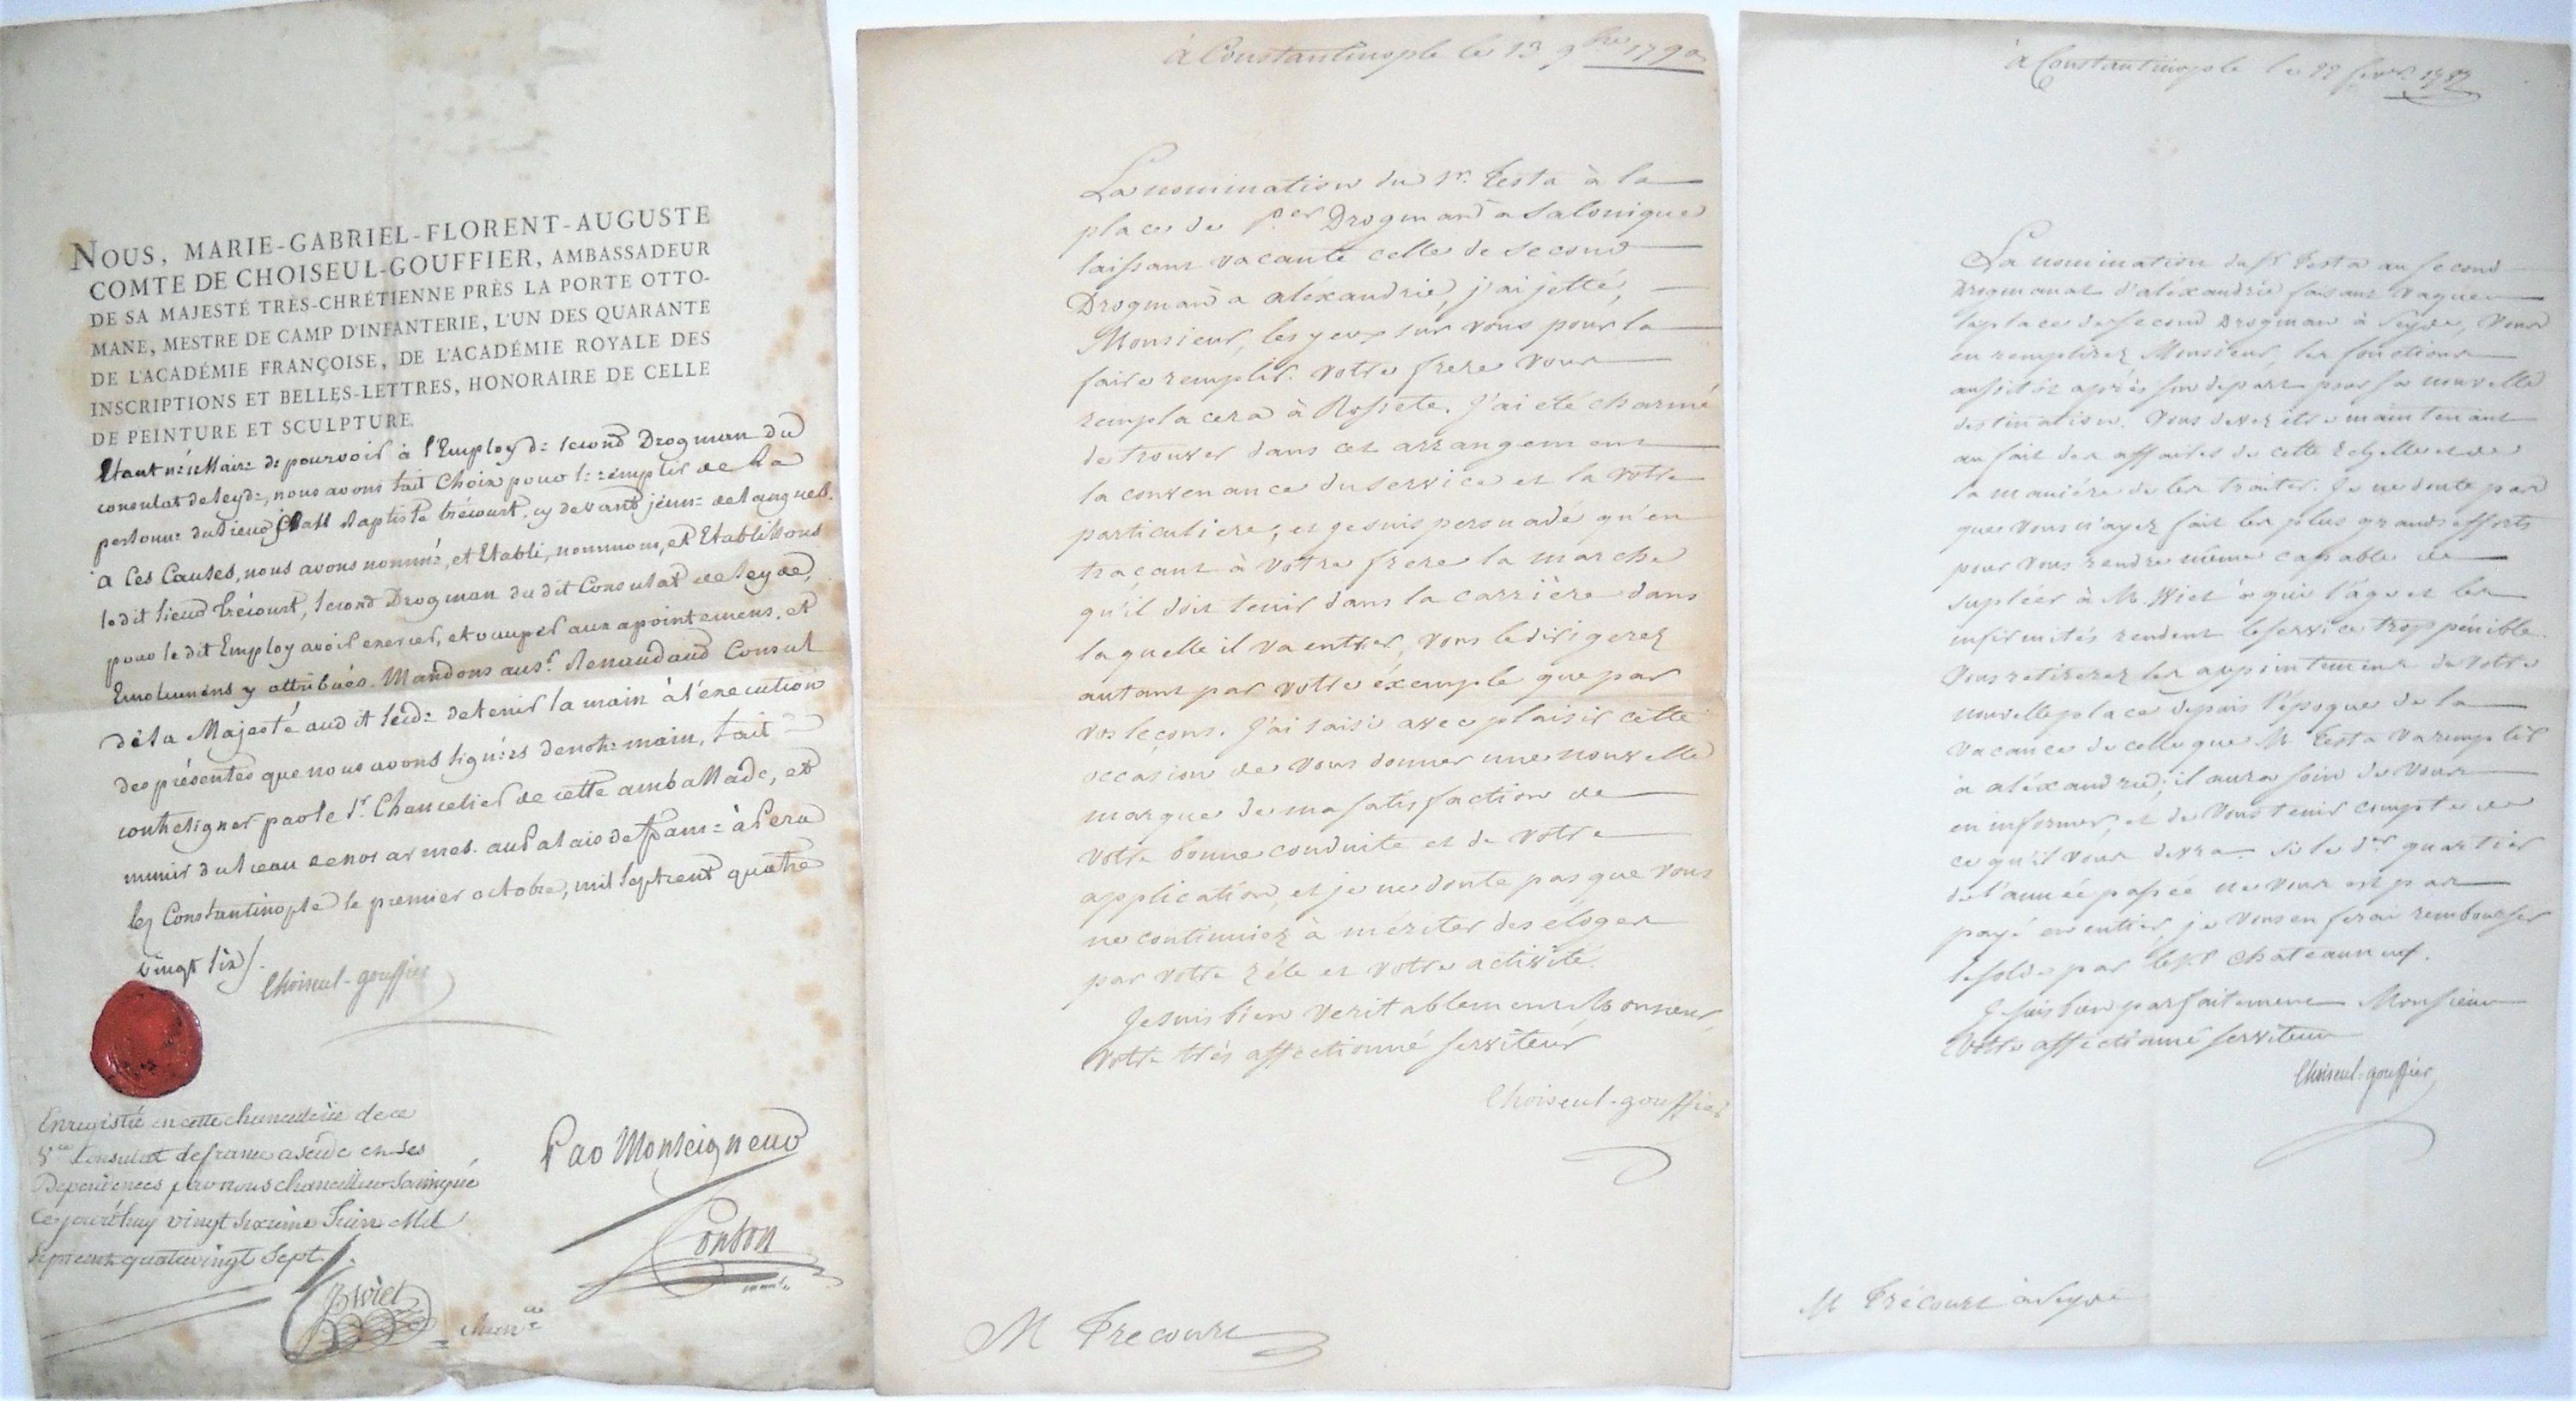 NOUS, MARIE-GABRIEL-FLORENT-AUGUSTE
COMTE DE CHOISEUL-GOUFFIER, AMBASSADEUR
DE SA MAJESTÉ TRÈS-CHRÉTIENNE PRÈS LA PORTE OTTO-
MANE, MESTRE DE CAMP D'INFANTERIE, L'UN DES QUARANTE
DE L'ACADÉMIE FRANÇOISE, DE L'ACADÉMIE ROYALE DES
INSCRIPTIONS ET BELLES-LETTRES, HONORAIRE DE CELLE
DE PEINTURE ET SCULPTURE.
Etant nécessaire de pourvoir à l'Employ de second Drogman du
consulat de seyde, nous avons fait Choix pour le remplir de La
personne du Sieur Baptiste trécourt, cy devant jeune de langues.
à Ces Causes, nous avons nommé, et Etabli, nommons, et Etablissons
le dit sieur trécourt, second Drogman du dit Consulat de seyde,
pour le dit Employ avoir exercer, et occuper aux apointemens, et
Emolumens y attribués. Mandons au sr. Renaudaud Consul
de sa Majesté au dit seide de tenir la main à l'execution
des présentes que nous avons signées de notre main, fait
contresigner par le Sr. Chancelier de cette ambassade, et
munir du sceau de nos armes. au Palais de france à Pera
lez Constantinople le premier octobre, mil sept cent quatre
vingt six.
Choiseul-gouffier
Enregistré en cette chancelerie de ce
Consulat de france a seide en ses
Dépendences par nous chancellier soussigné
Ce jourd'huy vingt sixième Juin Mil
Sept cent quatrevingt sept.
Wiet
Par Monseigneur
Fonton
à Constantinople le 13 9bre 1790
La nomination du Sr. Testa à la
place de Per Drogman à Salonique
laissant vacante celle de second
Drogman à aléxandrie, j'ai jetté,
Monsieur, les yeux sur vous pour la
faire remplir. votre frere vous
remplacera à Rossete. J'ai été charmé
de trouver dans cet arrangement
la convenance du service et la votre
particuliere, et je suis persuadé qu'en
traçant à votre frere la marche
qu'il doit tenir dans la carrière dans
laquelle il va entrer, vous le dirigerez
autant par votre éxemple que par
vos leçons. J'ai saisi avec plaisir cette
occasion de vous donner une nouvelle
marque de ma satisfaction de
votre bonne conduite et de votre
application, et je ne doute pas que vous
ne continuiez à mériter des éloges
par votre zéle et votre activité.
Je suis bien veritablement Monsieur,
Votre très affectionné serviteur
Choiseul-gouffier
M Trecourt
à Constantinople le 22
La nomination du Sr Testa au second
Drogmanat d'aléxandrie faisant vaquer
la place de second Drogman à Seyde, vous
en remplirez Monsieur, les fonctions
aussitôt après son départ pour sa nouvelle
destination. Vous devez être maintenant
au fait des affaires de cette Echelle et de
la maniére de les traiter. Je ne doute pas
que vous n'ayez fait les plus grands efforts
pour vous rendre même capable de
supléer à M. Wiet à qui l'âge et les
infirmités rendent le service trop pénible.
Vous retirerez les appointemens de votre
nouvelle place depuis l'époque de la
vacance de celle que M. Testa va remplir
à aléxandrie; il aura soin de vous
en informer, et de vous tenir compte de
ce qu'il vous devra. si le der quartier
de l'année passée ne vous est pas
payé en entier, je vous en ferai rembourser
le solde par le Sr chateauneuf.
Je suis bien parfaitement Monsieur
Votre affectionné serviteur
Choiseul-gouffier
M Trécourt à Seyde